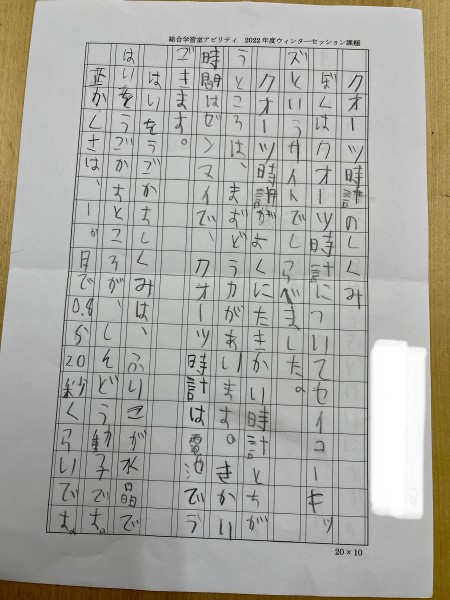 総合学習室アビリティ 2022年度ウィンターセッション課題
クオーツ時計のしくみ
ぼくはクオーツ時計についてセイコーキッ
ズというサイトでしらべました。
クオーツ時計がよくにたきかい時計とちが
うところは、まずどうカがあいます。きかい
時間はゼンマイで、クオーツ時計は電池でう
ごきます。
はいをうごかすしくみは、ふりこが水晶で
はいをうごかすところが、しんどう動子です。
正かくさは、一か月で0.8から20秒くらいです。
20×10